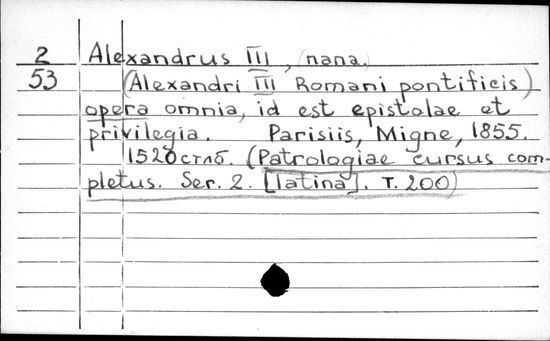 2 Alexandrus III, (папа)
53 (Alexandri III Romani pontificis)
opera omnia, id est epistolae et
privilegia. Parisiis, Migne, 1855.
1520 стлб. (Patrologiae cursus com-
pletus. Ser. 2. [latina]. T. 200)